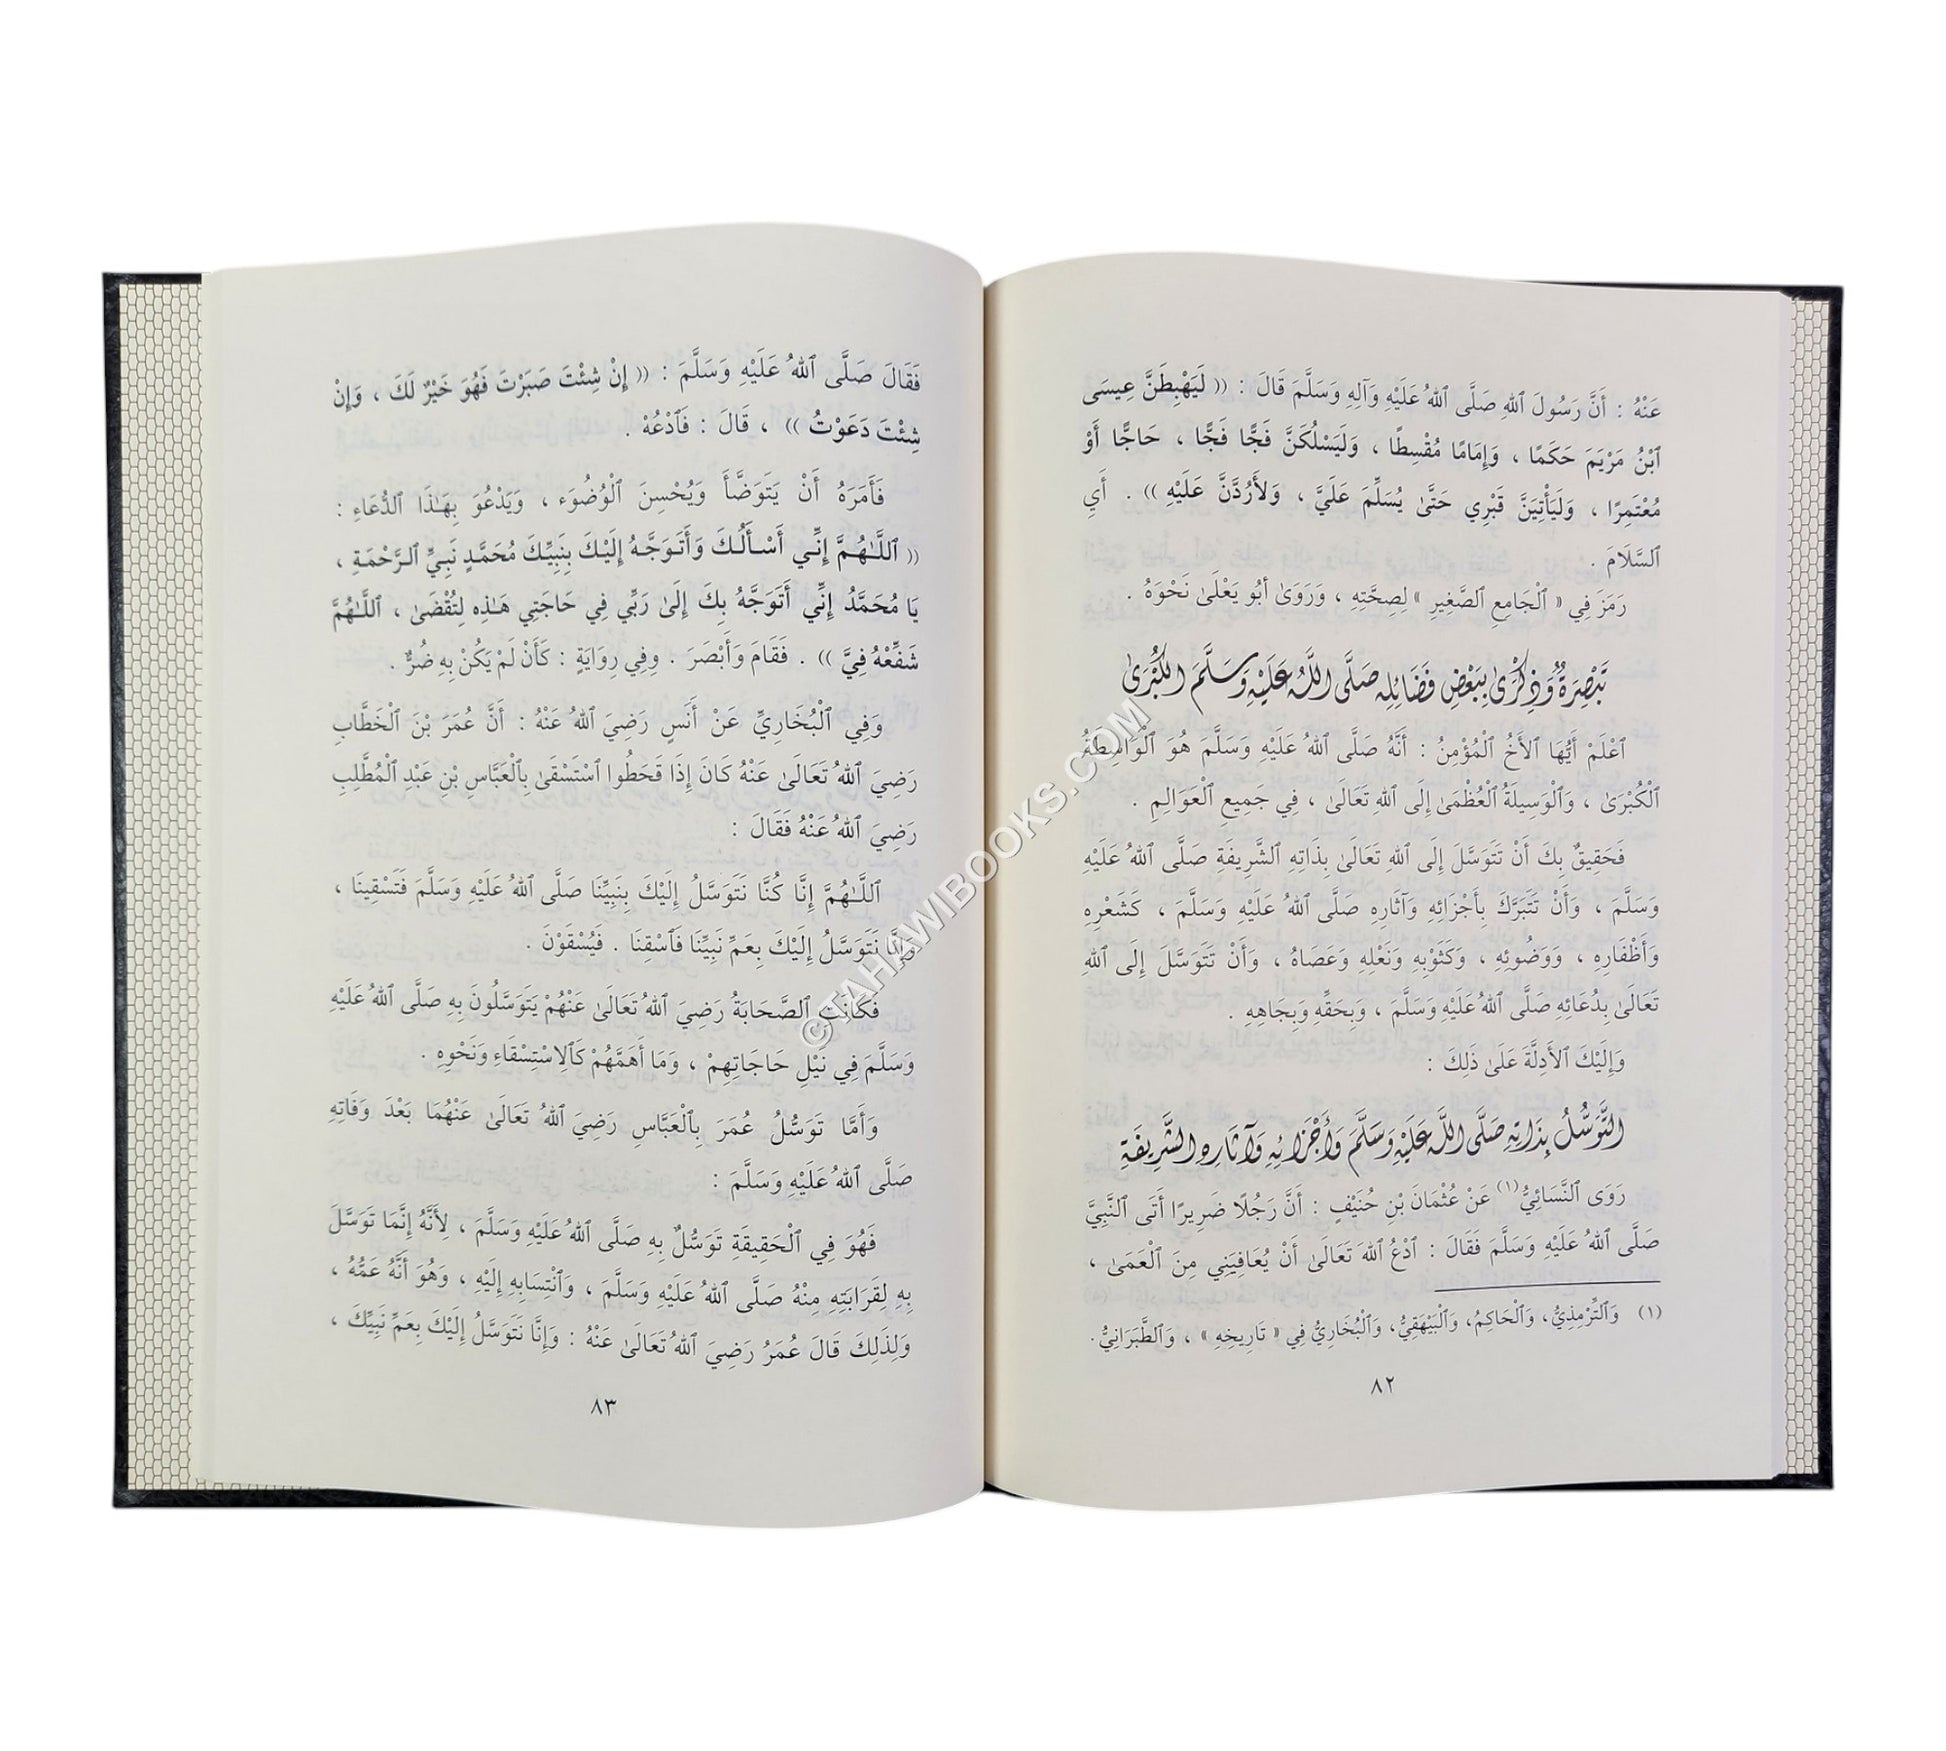 عَنْهُ : أَنَّ رَسُولَ ٱللهِ صَلَّى ٱللهُ عَلَيْهِ وَآلِهِ وَسَلَّمَ قَالَ : (( لَيَهْبِطَنَّ عِيسَى
ٱبْنُ مَرْيَمَ حَكَمًا ، وَإِمَامًا مُقْسِطًا ، وَلَيَسْلُكَنَّ فَجًّا فَجًّا ، حَاجًّا أَوْ
مُعْتَمِرًا ، وَلَيَأْتِيَنَّ قَبْرِي حَتَّىٰ يُسَلِّمَ عَلَيَّ ، وَلأَرُدَّنَّ عَلَيْهِ )) . أَيِ
ٱلسَّلَامَ .
رَمَزَ فِي « ٱلْجَامِعِ ٱلصَّغِيرِ » لِصِحَّتِهِ ، وَرَوَىٰ أَبُو يَعْلَىٰ نَحْوَهُ .
تَبْصِرَةٌ وَذِكْرَىٰ بِبَعْضِ فَضَائِلِهِ صَلَّى اللَّهُ عَلَيْهِ وَسَلَّمَ الكُبْرَىٰ
ٱعْلَمْ أَيُّهَا ٱلأَخُ ٱلْمُؤْمِنُ : أَنَّهُ صَلَّى ٱللهُ عَلَيْهِ وَسَلَّمَ هُوَ ٱلْوَاسِطَةُ
ٱلْكُبْرَىٰ ، وَٱلْوَسِيلَةُ ٱلْعُظْمَىٰ إِلَى ٱللهِ تَعَالَىٰ ، فِي جَمِيعِ ٱلْعَوَالِمِ .
فَحَقِيقٌ بِكَ أَنْ تَتَوَسَّلَ إِلَى ٱللهِ تَعَالَىٰ بِذَاتِهِ ٱلشَّرِيفَةِ صَلَّى ٱللهُ عَلَيْهِ
وَسَلَّمَ ، وَأَنْ تَتَبَرَّكَ بِأَجْزَائِهِ وَآثَارِهِ صَلَّى ٱللهُ عَلَيْهِ وَسَلَّمَ ، كَشَعْرِهِ
وَأَظْفَارِهِ ، وَوَضُوئِهِ ، وَكَثَوْبِهِ وَنَعْلِهِ وَعَصَاهُ ، وَأَنْ تَتَوَسَّلَ إِلَى ٱللهِ
تَعَالَىٰ بِدُعَائِهِ صَلَّى ٱللهُ عَلَيْهِ وَسَلَّمَ ، وَبِحَقِّهِ وَبِجَاهِهِ .
وَإِلَيْكَ ٱلأَدِلَّةَ عَلَىٰ ذَلِكَ :
التَّوَسُّلُ بِذَاتِهِ صَلَّى اللَّهُ عَلَيْهِ وَسَلَّمَ وَأَجْزَائِهِ وَآثَارِهِ الشَّرِيفَةِ
رَوَى ٱلنَّسَائِيُّ(١) عَنْ عُثْمَانَ بْنِ حُنَيْفٍ : أَنَّ رَجُلًا ضَرِيرًا أَتَى ٱلنَّبِيَّ
صَلَّى ٱللهُ عَلَيْهِ وَسَلَّمَ فَقَالَ : ٱدْعُ ٱللهَ تَعَالَىٰ أَنْ يُعَافِيَنِي مِنَ ٱلْعَمَىٰ ،
(١) وَٱلتِّرْمِذِيُّ، وَٱلْحَاكِمُ، وَٱلْبَيْهَقِيُّ، وَٱلْبُخَارِيُّ فِي « تَارِيخِهِ » ، وَٱلطَّبَرَانِيُّ.
٨٢
فَقَالَ صَلَّى ٱللهُ عَلَيْهِ وَسَلَّمَ : (( إِنْ شِئْتَ صَبَرْتَ فَهُوَ خَيْرٌ لَكَ ، وَإِنْ
شِئْتَ دَعَوْتُ )) ، قَالَ : فَٱدْعُهْ .
فَأَمَرَهُ أَنْ يَتَوَضَّأَ وَيُحْسِنَ ٱلْوُضُوءَ ، وَيَدْعُوَ بِهَـٰذَا ٱلدُّعَاءِ :
(( ٱللَّـٰهُمَّ إِنِّي أَسْأَلُكَ وَأَتَوَجَّهُ إِلَيْكَ بِنَبِيِّكَ مُحَمَّدٍ نَبِيِّ ٱلرَّحْمَةِ ،
يَا مُحَمَّدُ إِنِّي أَتَوَجَّهُ بِكَ إِلَىٰ رَبِّي فِي حَاجَتِي هَـٰذِهِ لِتُقْضَىٰ ، ٱللَّـٰهُمَّ
شَفِّعْهُ فِيَّ )) . فَقَامَ وَأَبْصَرَ . وفِي رِوَايَةٍ : كَأَنْ لَمْ يَكُنْ بِهِ ضُرٌّ .
وَفِي ٱلْبُخَارِيِّ عَنْ أَنَسٍ رَضِيَ ٱللهُ عَنْهُ : أَنَّ عُمَرَ بْنَ ٱلْخَطَّابِ
رَضِيَ ٱللهُ تَعَالَىٰ عَنْهُ كَانَ إِذَا قَحَطُوا ٱسْتَسْقَىٰ بِٱلْعَبَّاسِ بْنِ عَبْدِ ٱلْمُطَّلِبِ
رَضِيَ ٱللهُ عَنْهُ فَقَالَ :
ٱللَّـٰهُمَّ إِنَّا كُنَّا نَتَوَسَّلُ إِلَيْكَ بِنَبِيِّنَا صَلَّى ٱللهُ عَلَيْهِ وَسَلَّمَ فَتَسْقِينَا ،
وَإِنَّا نَتَوَسَّلُ إِلَيْكَ بِعَمِّ نَبِيِّنَا فَٱسْقِنَا . فَيُسْقَوْنَ .
فَكَانَتِ ٱلصَّحَابَةُ رَضِيَ ٱللهُ تَعَالَىٰ عَنْهُمْ يَتَوَسَّلُونَ بِهِ صَلَّى ٱللهُ عَلَيْهِ
وَسَلَّمَ فِي نَيْلِ حَاجَاتِهِمْ ، وَمَا أَهَمَّهُمْ كَٱلِاسْتِسْقَاءِ وَنَحْوِهِ .
وَأَمَّا تَوَسُّلُ عُمَرَ بِٱلْعَبَّاسِ رَضِيَ ٱللهُ تَعَالَىٰ عَنْهُمَا بَعْدَ وَفَاتِهِ
صَلَّى ٱللهُ عَلَيْهِ وَسَلَّمَ :
فَهُوَ فِي ٱلْحَقِيقَةِ تَوَسُّلٌ بِهِ صَلَّى ٱللهُ عَلَيْهِ وَسَلَّمَ ، لِأَنَّهُ إِنَّمَا تَوَسَّلَ
بِهِ لِقَرَابَتِهِ مِنْهُ صَلَّى ٱللهُ عَلَيْهِ وَسَلَّمَ ، وَٱنْتِسَابِهِ إِلَيْهِ ، وَهُوَ أَنَّهُ عَمُّهُ ،
وَلِذَلِكَ قَالَ عُمَرُ رَضِيَ ٱللهُ تَعَالَىٰ عَنْهُ : وَإِنَّا نَتَوَسَّلُ إِلَيْكَ بِعَمِّ نَبِيِّكَ ،
٨٣
© TAHAWIBOOKS.COM